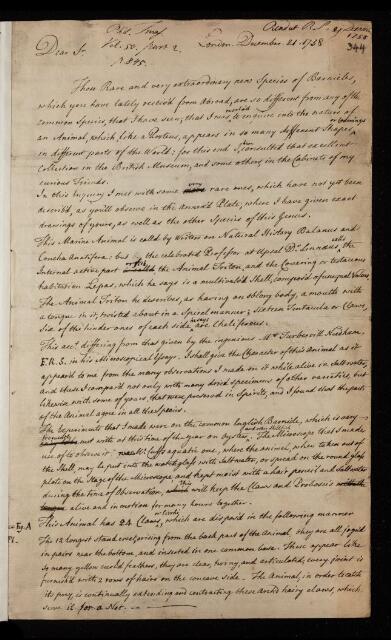 Phil. Trans. Read at R.S. 21 Decem. 1758
Dear Sr. Vol. 50. part 2. London. December. 21. 1758 344
p. 845.
Those Rare and very extraordinary new Species of Barnicles,
which you have lately receivd from Abroad, are so different from any of the
common Species, that I have seen, that I was to enquire into the nature of
an Animal, which, like a Proteus, appears in so many different Shapes,
in different parts of the World: for this end I then consulted that excellent
Collection in the British Museum, and some others in the Cabinets of my
curious Friends.
In this Inquiry I met with some very rare ones, which have not yet been
describ'd, as you'll observe in the annex'd Plate, where I have given exact
drawings of yours, as well as the other Species of this Genus.
This Marine Animal is call'd by Writers on Natural History Balanus and
Concha Anatifera: but the celebrated Professor at Upsal Dr. Linnæus, calls the
Internal active part the Animal Triton, and the Covering or testaceous
habitation Lepas, which he says is a multivalv'd Shell, compos'd of unequal Valves
The Animal Triton he describes, as having an oblong body, a mouth with
a tongue in it, twisted about in a spiral manner; Sixteen Tentacula or Claws,
Six of the hinder ones of each side, are Cheliferous.
This acct. differing from that given by the ingenious Mr. Turbervill Needham,
F.R.S. in his Microscopical Essays. I shall give the Character of this Animal as it
appeard to me from the many observations I made on it while alive in Salt water,
and these I compar'd not only with many dried specimens of other varieties, but
likewise with some of yours that were preserved in Spirits, and I found that the parts
of the Animal agree in all the species.
The Experiments that I made were on the common English Barnicle, which is very
out with at this time of the year on oysters. The Microscope that I made
use of to observe it was Mr. Cuff's aquatic one, where the animal, when taken out of
the Shell, may be put into the watch glass with Salt water; or spread on the round glass
plate on the Stage of the Microscope and kept moist with a hair pencil and Salt water
during the time of Observation, This will keep the Claws and Proboscis
alive and in motion for many hours together.
This Animal has 24 Claws, which are dispos'd in the following manner
The 12 longest stand erect, arising from the back part of the animal, they are all joyn'd
in pairs near the bottom, and inserted in one common base. These appear like
so many yellow curl'd feathers, they are clear, horny, and articulated; every joint is
furnish'd with 2 rows of hairs on the concave side. The Animal, in order to catch
its prey, is continually extending and contracting these arch'd hairy claws, which
serve it for a Net.